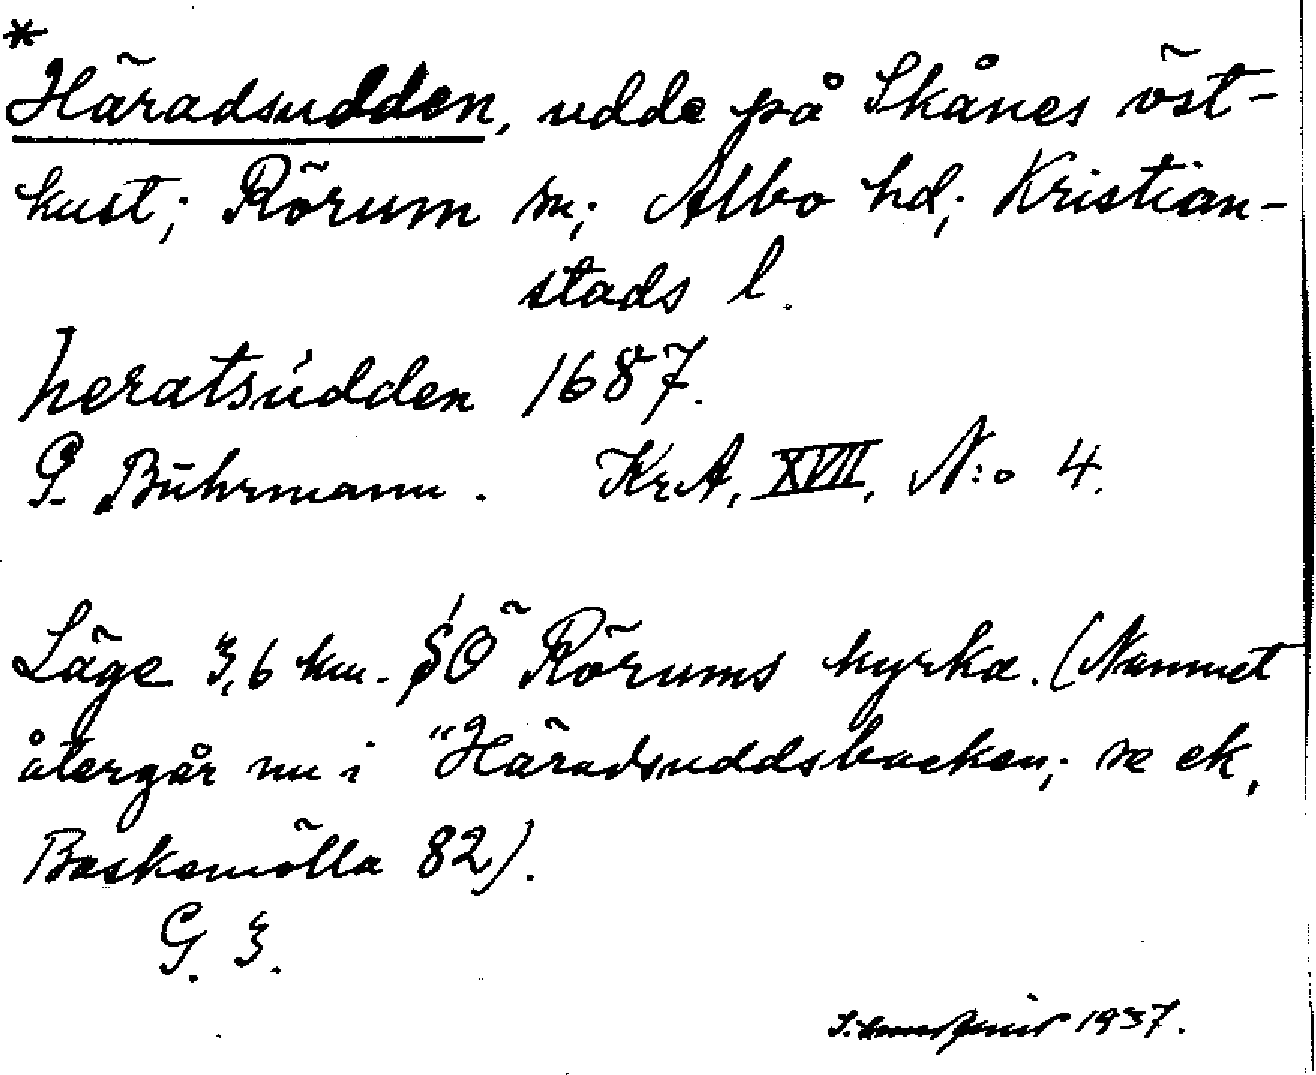 *
Häradsudden, udde på Skånes öst-
kust; Rörum sn; Albo hd; Kristian-
stads l.
heratsúdden 1687.
G. Buhrmann. KrA, XVII, N:o 4.
Läge 3,6 km. SÖ Rörums kyrka. (Namnet
återgår nu i "Häradsuddsbacken; se ek,
Baskemölla 82).
G. 3.
1937.